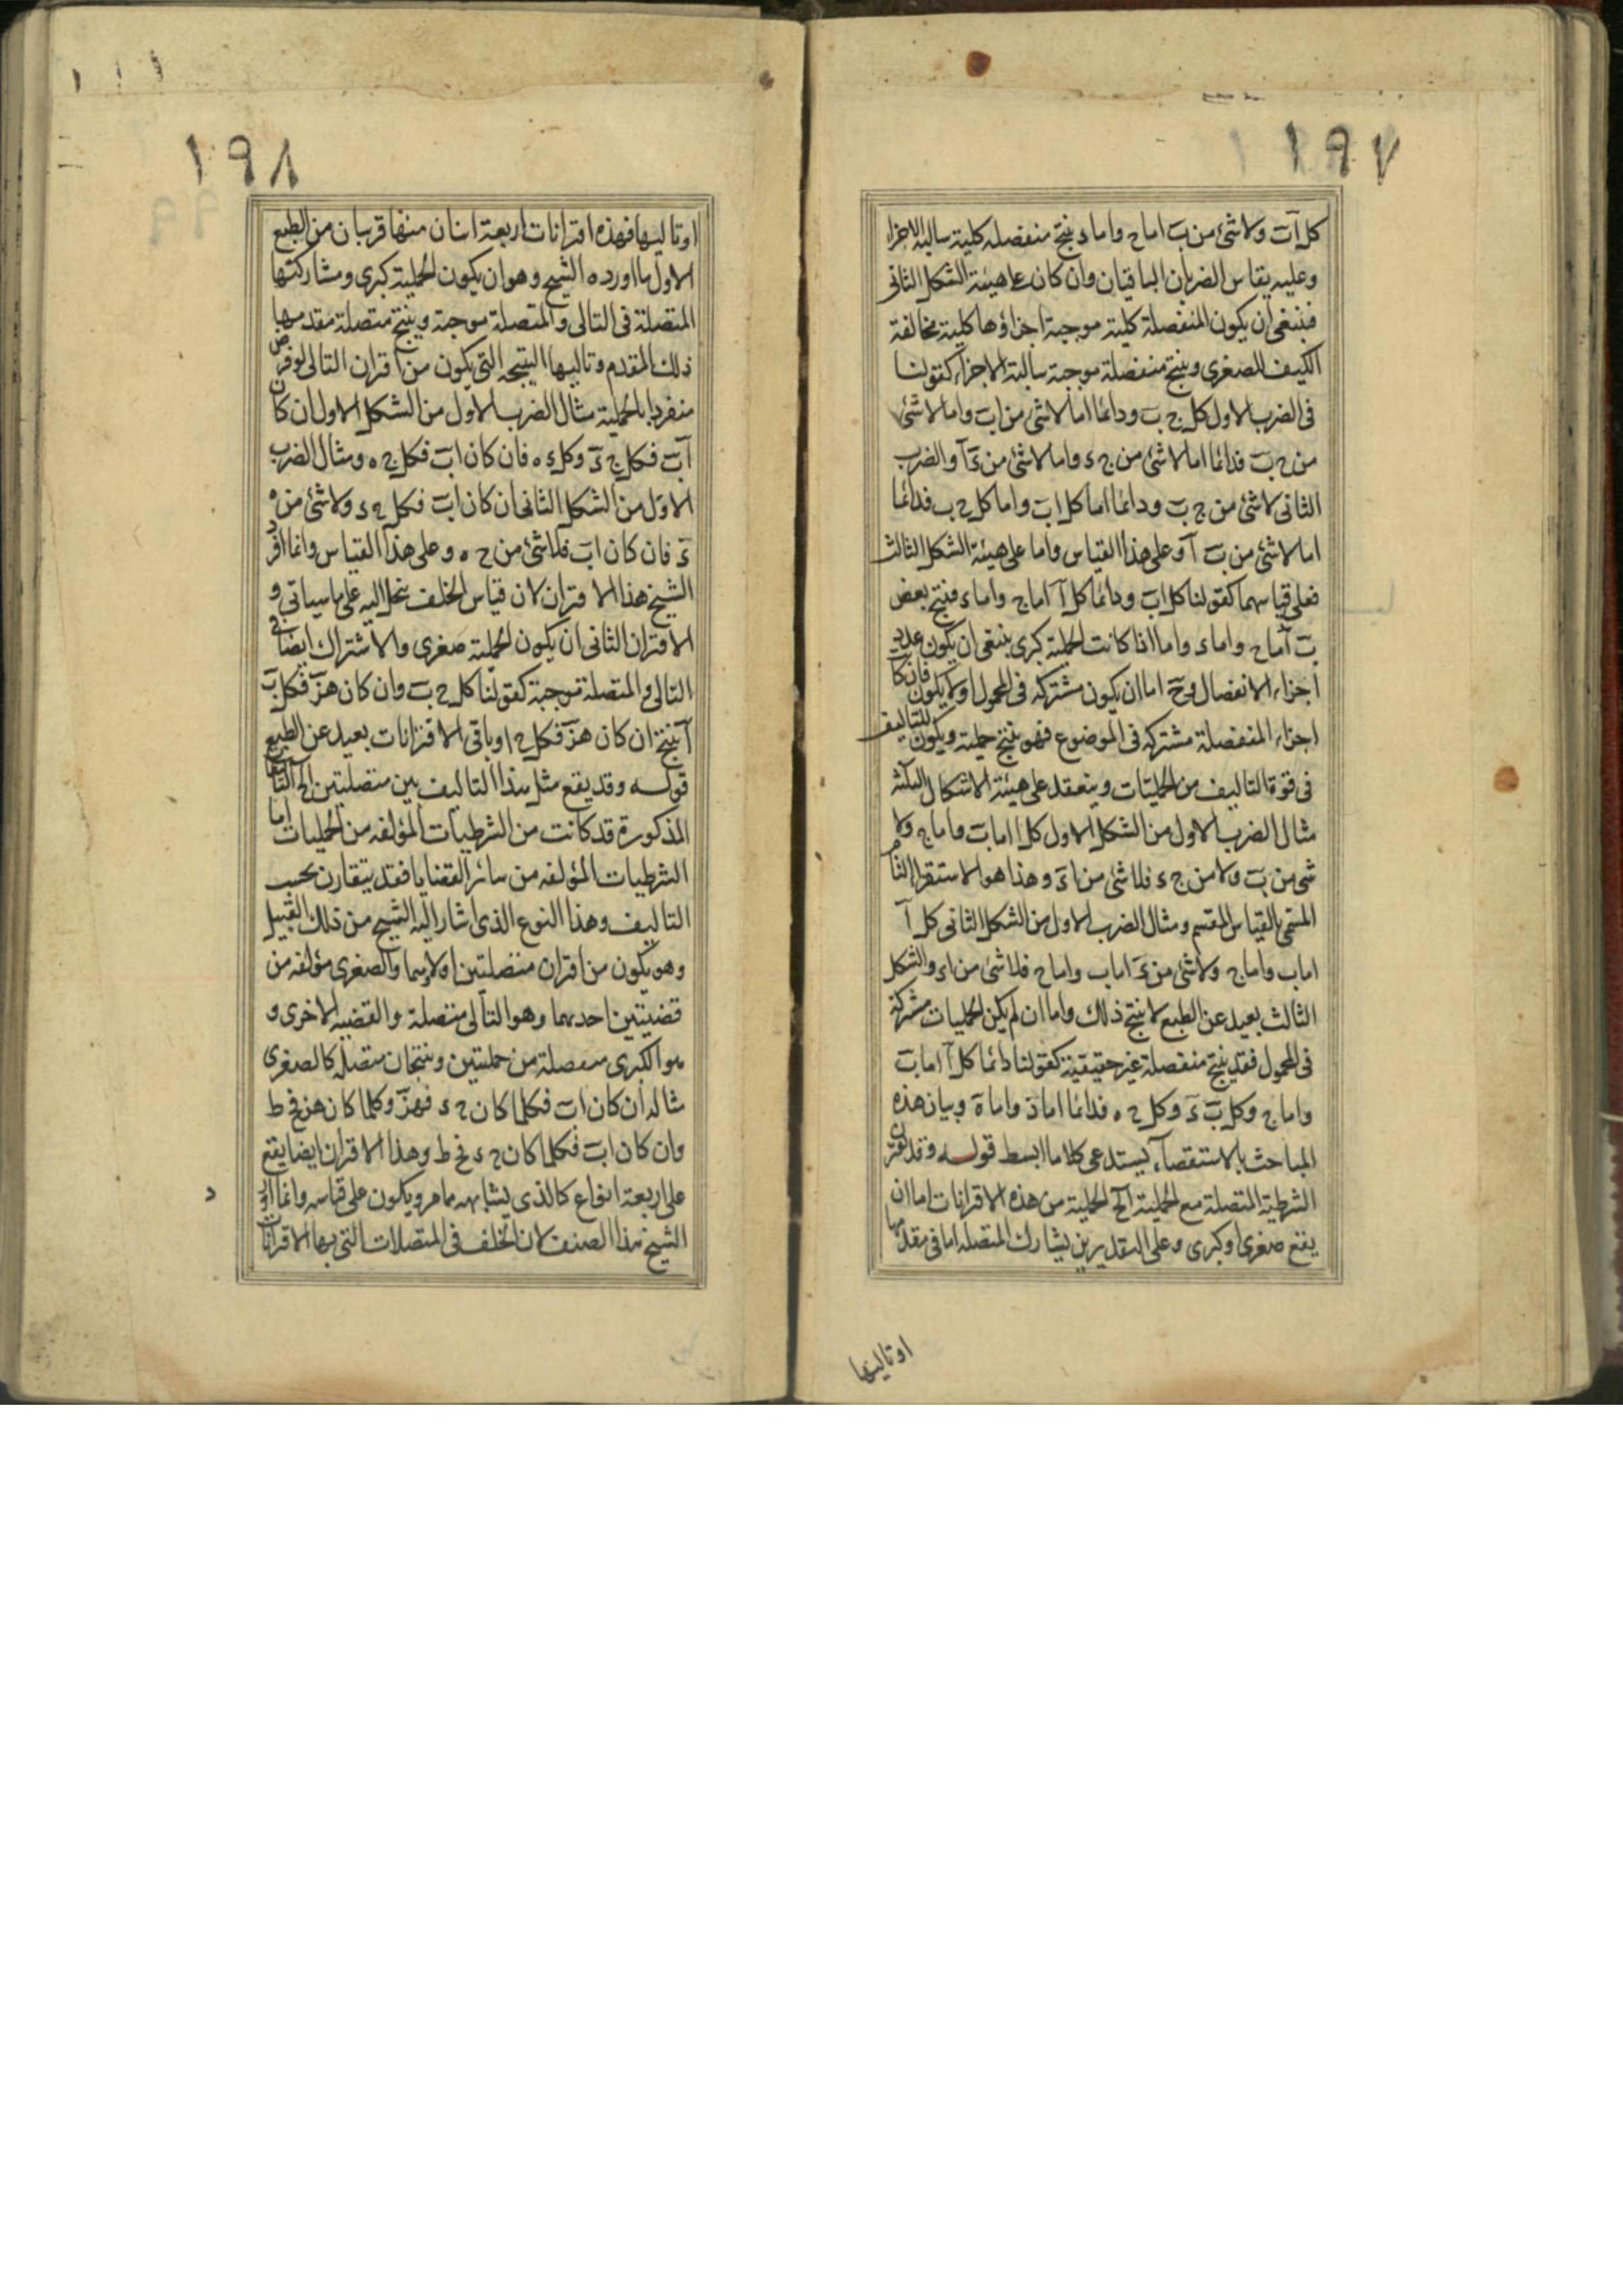 ١٩٧
كل آب ولا شئ من ب اما ج واما د ينتج منفصله كلية سالبة الاجزاء
وعليه يقاس الضربان الباقيان وان كان على هيئة الشكل الثانى
فينبغى ان يكون المنفصلة كلية موجبة اجزاؤها كلية مخالفة
الكيف للصغرى وينتج منفصلة موجبة سالبة الاجزاء كقولنا
فى الضرب الاول كل ج ب ودائما اما لا شئ من اب واما لا شئ
من ج ب فدائما اما لا شئ من ج ء واما لا شئ من ءآ والضرب
الثانى لا شئ من ج ب ودائما اما كل اب واما كل ج ب فدائما
اما لا شئ من ب آ وعلى هذا القياس واما على هيئة الشكل الثالث
فعلى قياسهما كقولنا كل اب ودائما كل آ اما ج واما ء فينتج بعض
ب اما ج واما ء واما اذا كانت الحملية كرى ينبغى ان يكون عدد
اجزاء الانفصال وح اما ان يكون مشتركه فى المحمول اولا يكون فان كا
اجزاء المنفصلة مشتركه فى الموضوع فهو ينتج حملية ويكون للتاليف
فى قوة التاليف من الحمليات وينعقد على هيئة الاشكال الثلثه
مثال الضرب الاول من الشكل الاول كل ا اما ب واما ج ولا
شئ من ب ولا من ج ء فلا شئ من اء وهذا هو الاستقراء التام
المسمى بالقياس المقسم ومثال الضرب الاول من الشكل الثانى كل آ
اما ب واما ج ولا شئ من ء اما ب واما ج فلا شئ من اء والشكل
الثالث بعيد عن الطبع لا ينتج ذلك واما ان لم يكن الحمليات مشتركة
فى المحمول فقد ينتج منفصلة غير حقيقية كقولنا دائما كل آ اما ب
واما ج وكل ب ء وكل ج ه فدائما اما ء واما ه وبيان هذه
المباحث بالاستقصاء يستدعى كلاما ابسط قوله وقد تقترن
الشرطية المتصلة مع الحملية الخ الحملية من هذه الاقترانات اما ان
يقع صغرى او كبرى وعلى التقديرين يشارك المتصله اما فى مقدمها
او تاليها
١٩٨
او تاليها فهذه اقترانات اربعة اثنان منها قريبان من الطبع
الاول ما اورده الشيخ وهو ان يكون الحملية كبرى ومشاركتها
المتصلة فى التالى والمتصلة موجبة وينتج متصلة مقدمها
ذلك المقدم وتاليها النتيجه التى يكون من اقتران التالى لو فرض
منفردا بالحملية مثال الضرب الاول من الشكل الاول ان كان
آب فكل ج ء وكل ء ه فان كان اب فكل ج ه ومثال الضرب
الاول من الشكل الثانى ان كان اب فكل ج ء ولا شئ من ه
ء فان كان اب فلا شئ من ج ه وعلى هذا القياس وانما افرد
الشيخ هذا الاقتران لان قياس الخلف ينحل اليه على ما سياتى و
الاقتران الثانى ان يكون الحملية صغرى والاشتراك ايضا فى
التالى والمتصلة موجبة كقولنا كل ج ب وان كان هز فكل ب
آ ينتج ان كان هز فكل ج ا وباقى الاقترانات بعيد عن الطبع
قوله وقد يقع مثل هذا التاليف بين متصلتين الخ
المذكورة قد كانت من الشرطيات المؤلفه من الحمليات اما
الشرطيات المؤلفه من سائر القضايا فقد يتقارن بحسب
التاليف وهذا النوع الذى اشار اليه الشيخ من ذلك القبيل
وهو يكون من اقتران متصلتين اوليهما والصغرى مؤلفه من
قضيتين احديهما وهو التالى متصلة والقضيه الاخرى و
هو الكبرى متصلة من حمليتين وينتجان متصله كالصغرى
مثاله ان كان اب فكلما كان ج ء فهز وكلما كان هز فح ط
وان كان اب فكلما كان ج ء فح ط وهذا الاقتران ايضا يقع
على اربعة انواع كالذى يشابهه مما مر ويكون على قياسه وانما اورد
الشيخ هذا الصنف لان الخلف فى المتصلات التى بها الاقترانات